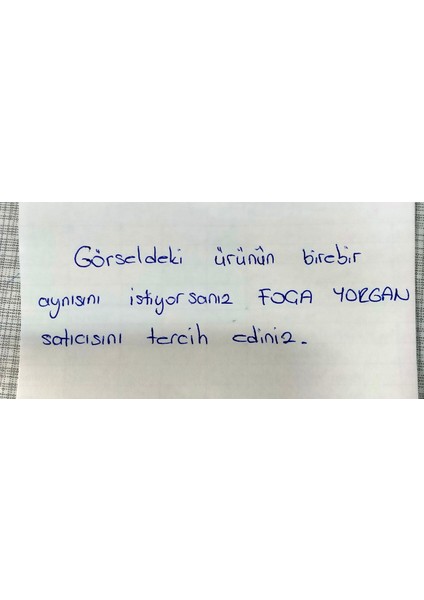 Görseldeki ürünün birebir
aynısını istiyorsanız FOGA YORGAN
satıcısını tercih ediniz.